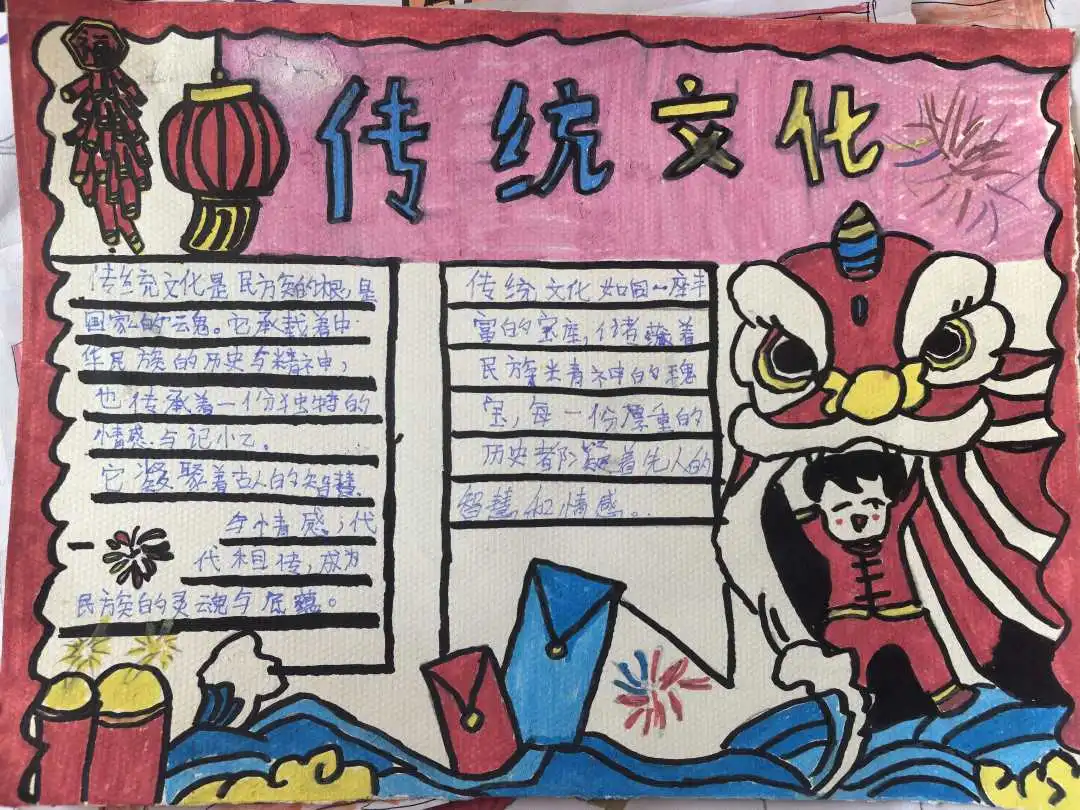 传统文化
传统文化是民族的根,是
国家的云鬼。它承载着中
华民族的历史与精神,
也传承着一份独特的
情感与记忆。
它凝聚着古人的智慧
与情感,代
代相传,成为
民族的灵魂与底蕴。
传统文化如同一座丰
富的宝座,储藏着
民族精神的瑰
宝,每一份厚重的
历史都凝着先人的
智慧和情感。